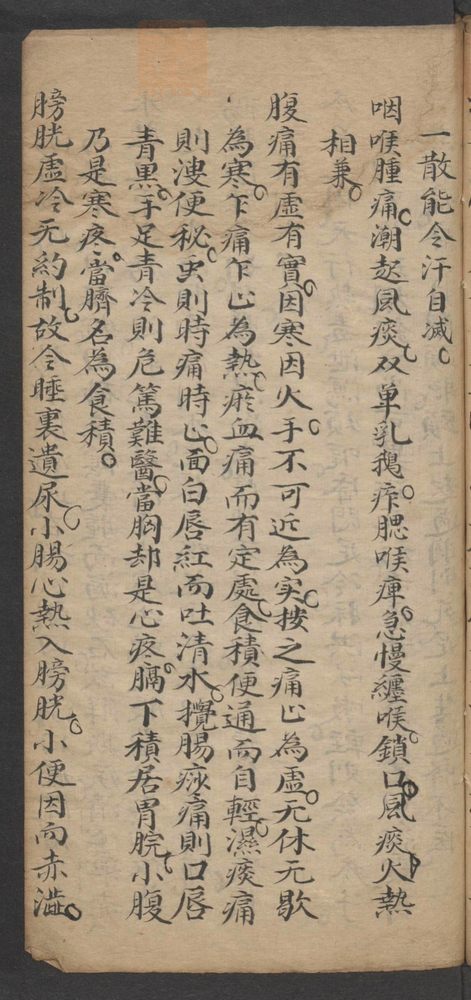 一散能令汗自滅。
咽喉腫痛。潮起風痰。双单乳鹅。痄腮喉痺。急慢纏喉。鎖口風痰火熱
相兼。
腹痛有虛有實。因寒因火。手不可近為实。按之痛止為虛。无休无歇
為寒。乍痛乍止為熱。瘀血痛而有定處。食積便通而自輕。濕痰痛
則溲便秘。虫則時痛時止。面白唇紅而吐清水。攪腸痧痛則口唇
青黑。手足青冷則危篤難醫。當胸却是心疼。膈下積居胃脘。小腹
乃是寒疼。當臍名為食積。
膀胱虛冷无約制。故令睡裏遺尿。小腸心熱入膀胱。小便因而赤澁。